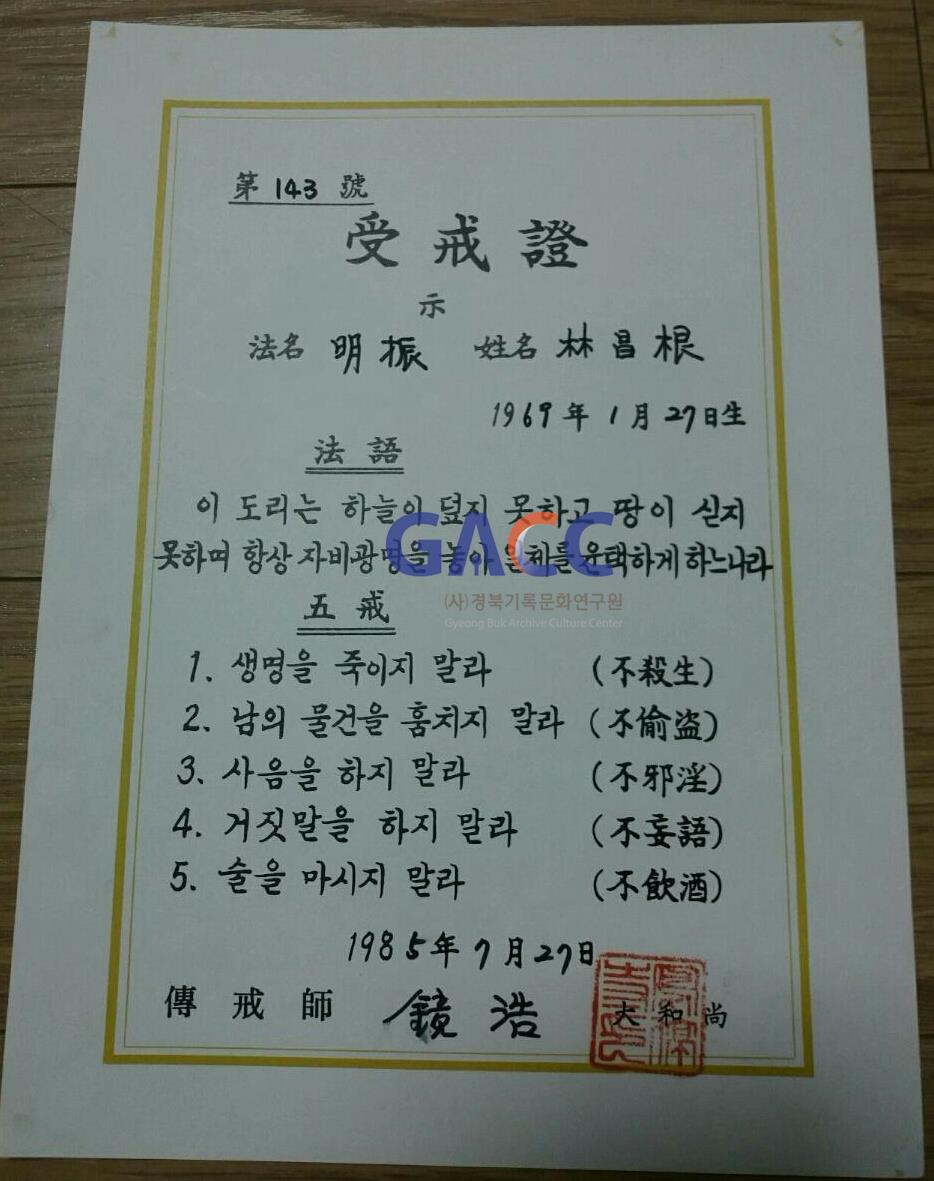 第 143 號
受戒證
示
法名 明振 姓名 林昌根
1969年 1月 27日生
法語
이 도리는 하늘이 덮지 못하고 땅이 싣지
못하며 항상 자비광명을 놓아 일체를 윤택하게 하느니라
GACC
(사)경북기록문화연구원
Gyeong Buk Archive Culture Center
五戒
1. 생명을 죽이지 말라 (不殺生)
2. 남의 물건을 훔치지 말라 (不偷盜)
3. 사음을 하지 말라 (不邪淫)
4. 거짓말을 하지 말라 (不妄語)
5. 술을 마시지 말라 (不飮酒)
1985年 7月 27日
傳戒師 鏡浩 大和尚